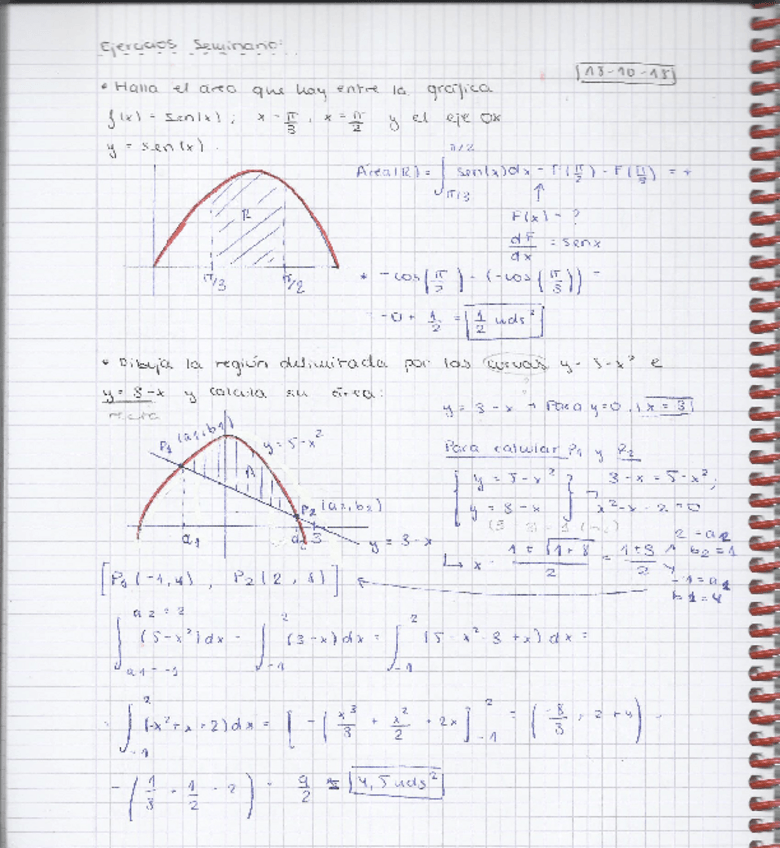 Ejercicios Seminario:
15-10-15
• Halla el área que hay entre la gráfica
f(x) = sen(x); x = π/3, x = π/2 y el eje OX
y = sen(x).
Área(R) = ∫_{π/3}^{π/2} sen(x)dx = F(π/2) - F(π/3) = *
R
π/3
π/2
F(x) = ?
dF/dx = senx
* -cos(π/2) - (-cos(π/3)) =
-0 + 1/2 = 1/2 uds²
• Dibuja la región delimitada por las curvas y = 5-x² e
y = 3-x y calcula su área:
recta
y = 3-x → Para y=0, x=3
P1 (a1,b1)
y = 5-x²
A
P2 (a2,b2)
a1
a2 3
y = 3-x
Para calcular P1 y P2
y = 5-x²
y = 3-x
3-x = 5-x²;
x²-x-2=0
x = (1±√(1+8))/2 = (1±3)/2
2=a2
b2=1
-1=a1
b1=4
[P1(-1,4), P2(2,1)]
∫_{a1=-1}^{a2=2} (5-x²)dx - ∫_{-1}^{2} (3-x)dx = ∫_{-1}^{2} (5-x²-3+x)dx =
= ∫_{-1}^{2} (-x²+x+2)dx = [-(x³/3 + x²/2 + 2x]_{-1}^{2} = (-8/3 + 2 + 4) -
- (1/3 + 1/2 - 2) = 9/2 = 4,5 uds²